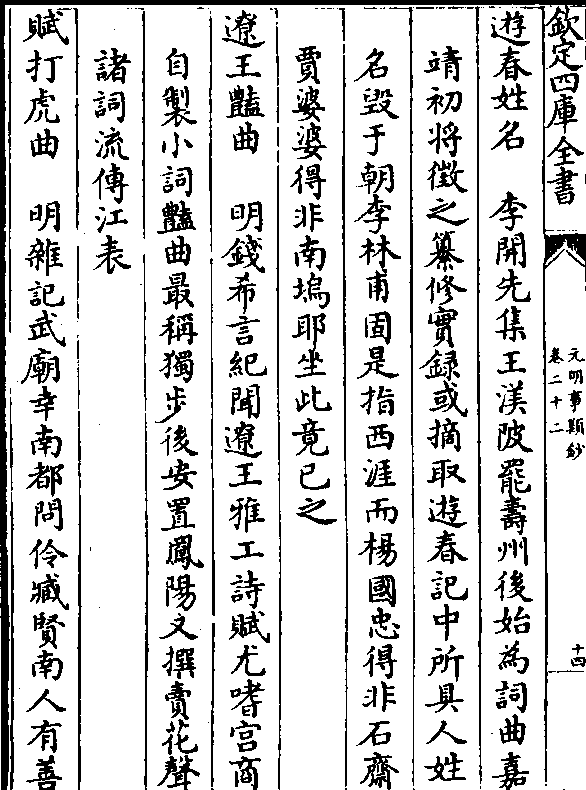 欽定四庫全書
元明事類鈔
卷二十二
十四
遊春姓名　李開先集王渼陂罷壽州後始為詞曲嘉
靖初將徵之纂修實録或摘取遊春記中所具人姓
名毀于朝李林甫固是指西涯而楊國忠得非石齋
賈婆婆得非南塢耶坐此竟已之
遼王豔曲　明錢希言紀聞遼王雅工詩賦尤嗜宫商
自製小詞豔曲最稱獨步後安置鳳陽又撰賣花聲
諸詞流傳江表
賦打虎曲　明雜記武廟幸南都問伶臧賢南人有善